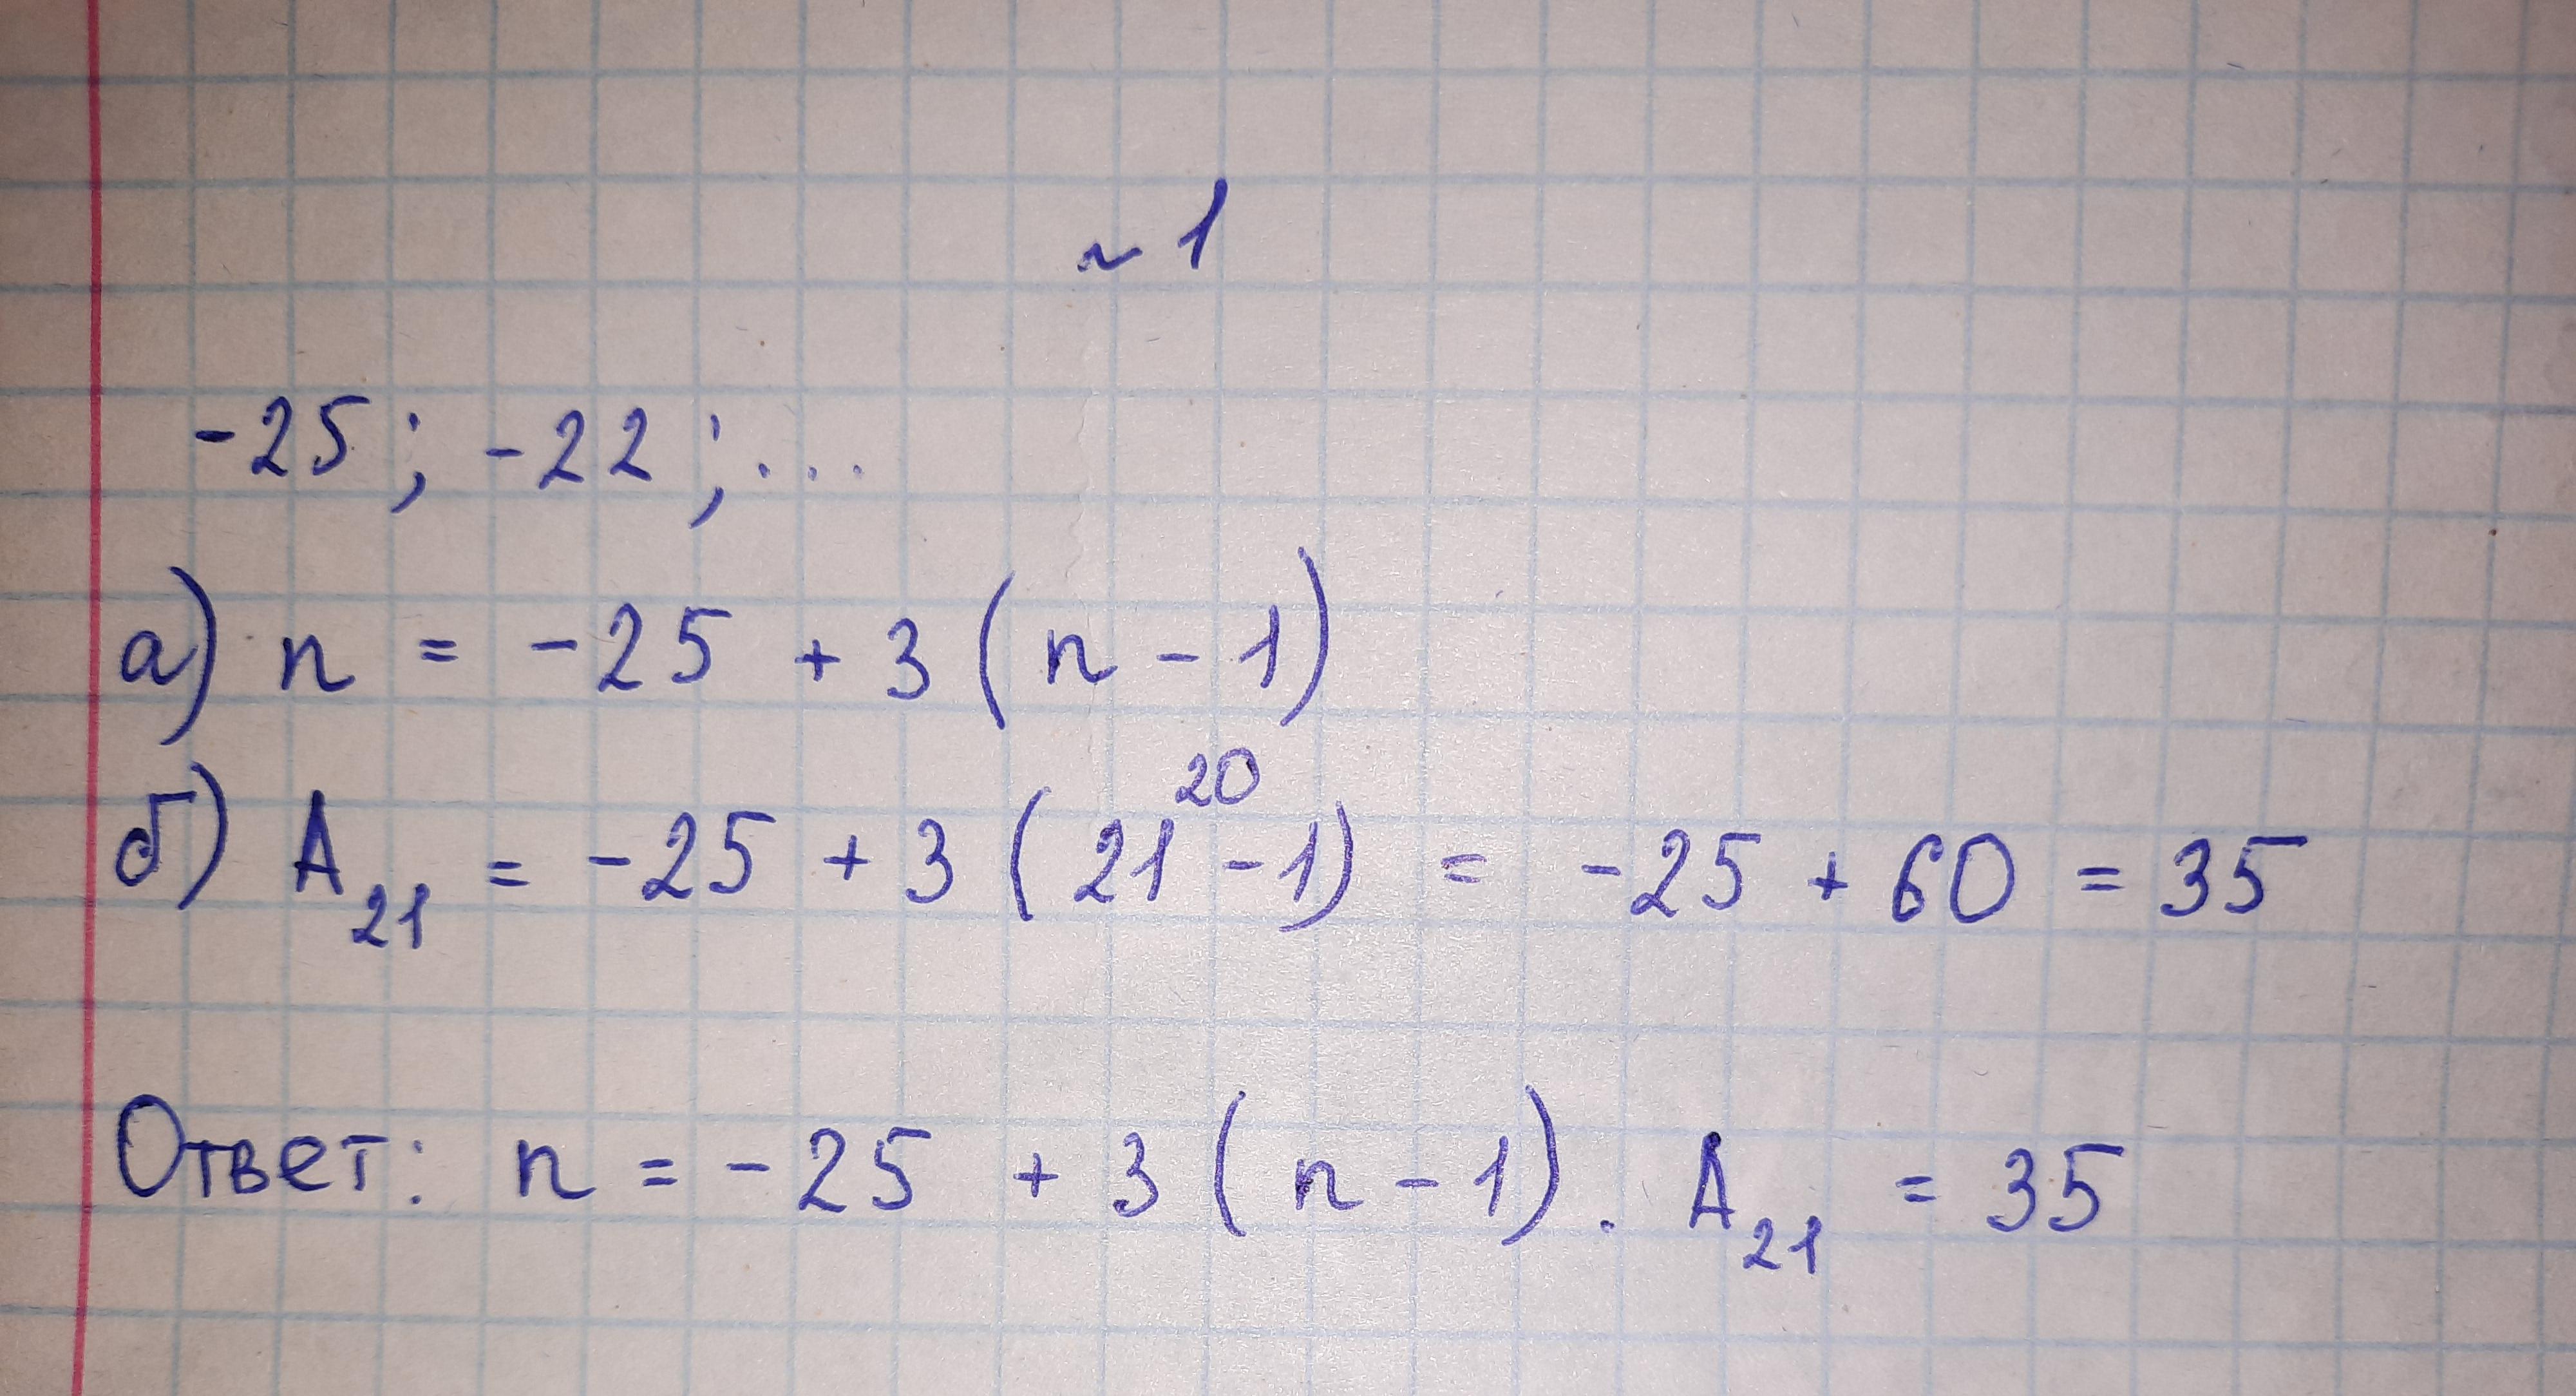 ~1
-25; -22; ...
а) n = -25 + 3(n-1)
20
б) A₂₁ = -25 + 3(21-1) = -25 + 60 = 35
Ответ: n = -25 + 3(n-1). A₂₁ = 35